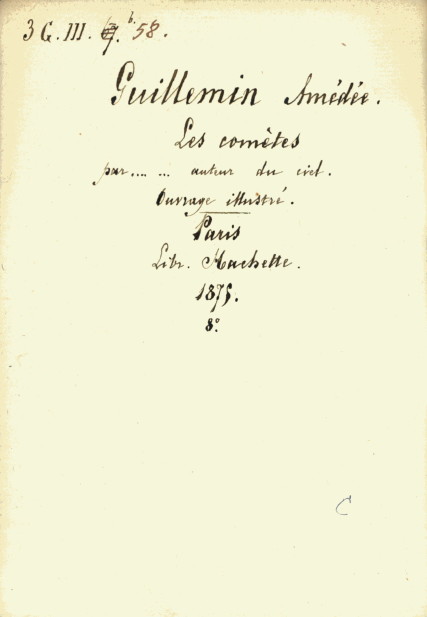 3 G. III. 7. b. 58.
Guillemin Amédée.
Les comètes
par.... ... auteur du ciel.
Ouvrage illustré.
Paris
Libr. Hachette.
1875.
8º
C